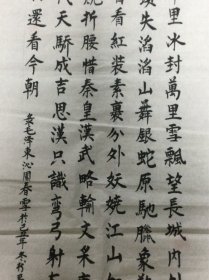 里冰封萬里雪飄望長城内外
頓失滔滔山舞銀蛇原馳臘象
看紅装素裹分外妖嬈江山如
折腰惜秦皇漢武略輸文采
代天驕成吉思漢只識彎弓射
還看今朝
毛澤東沁園春雪於己丑年冬